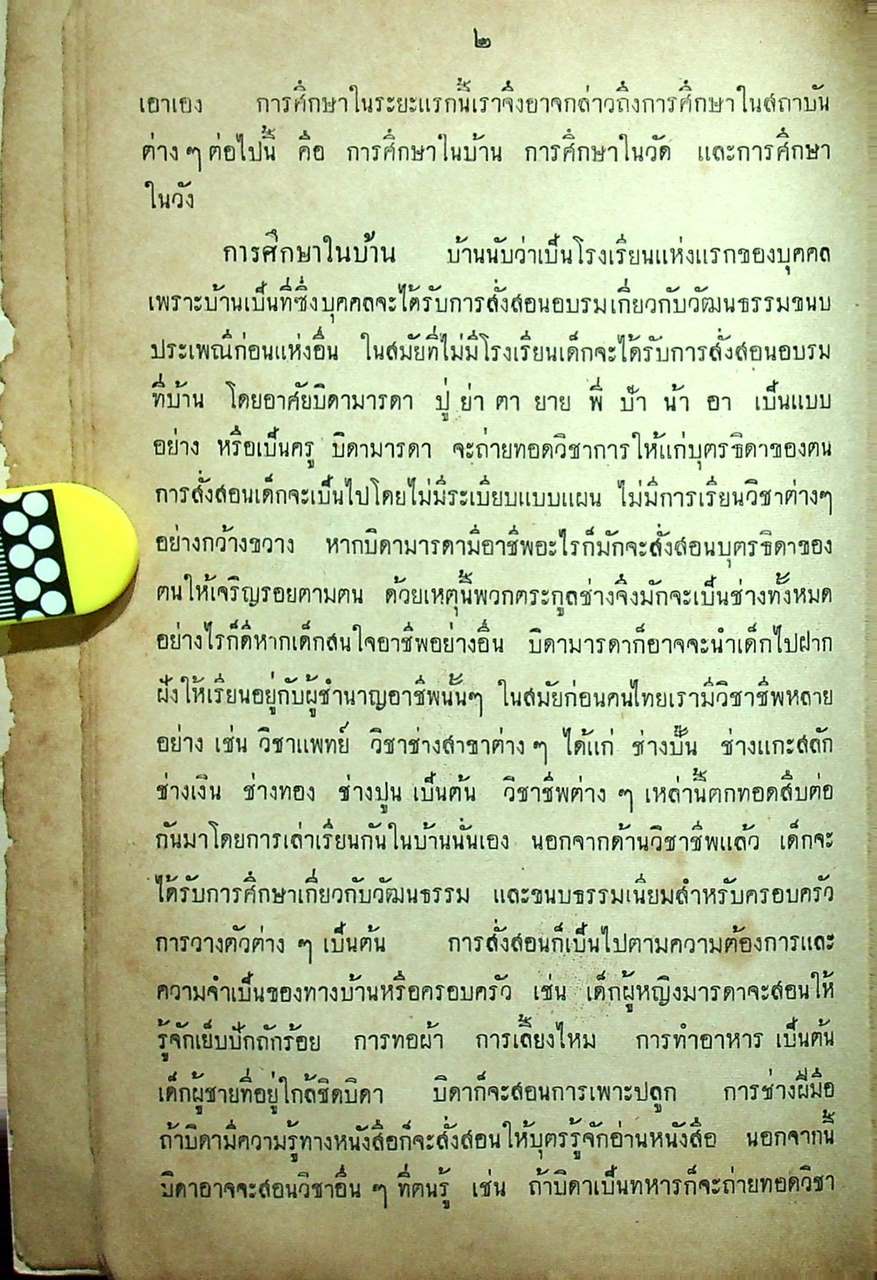 ๒
เอาเอง การศึกษาในระยะแรกนี้เราจึงอาจกล่าวถึงการศึกษาในสถาบัน
ต่าง ๆ ต่อไปนี้ คือ การศึกษาในบ้าน การศึกษาในวัด และการศึกษา
ในวัง
การศึกษาในบ้าน บ้านนับว่าเป็นโรงเรียนแห่งแรกของบุคคล
เพราะบ้านเป็นที่ซึ่งบุคคลจะได้รับการสั่งสอนอบรมเกี่ยวกับวัฒนธรรมขนบ
ประเพณีก่อนแห่งอื่น ในสมัยที่ไม่มีโรงเรียนเด็กจะได้รับการสั่งสอนอบรม
ที่บ้าน โดยอาศัยบิดามารดา ปู่ ย่า ตา ยาย พี่ ป้า น้า อา เป็นแบบ
อย่าง หรือเป็นครู บิดามารดา จะถ่ายทอดวิชาการให้แก่บุตรธิดาของตน
การสั่งสอนเด็กจะเป็นไปโดยไม่มีระเบียบแบบแผน ไม่มีการเรียนวิชาต่างๆ
อย่างกว้างขวาง หากบิดามารดามีอาชีพอะไรก็มักจะสั่งสอนบุตรธิดาของ
ตนให้เจริญรอยตามตน ด้วยเหตุนี้พวกตระกูลช่างจึงมักจะเป็นช่างทั้งหมด
อย่างไรก็ดีหากเด็กสนใจอาชีพอย่างอื่น บิดามารดาก็อาจจะนำเด็กไปฝาก
ฝังให้เรียนอยู่กับผู้ชำนาญอาชีพนั้นๆ ในสมัยก่อนคนไทยเรามีวิชาชีพหลาย
อย่าง เช่น วิชาแพทย์ วิชาช่างสาขาต่าง ๆ ได้แก่ ช่างปั้น ช่างแกะสลัก
ช่างเงิน ช่างทอง ช่างปูน เป็นต้น วิชาชีพต่าง ๆ เหล่านี้ตกทอดสืบต่อ
กันมาโดยการเล่าเรียนกันในบ้านนั่นเอง นอกจากด้านวิชาชีพแล้ว เด็กจะ
ได้รับการศึกษาเกี่ยวกับวัฒนธรรม และขนบธรรมเนียมสำหรับครอบครัว
การวางตัวต่าง ๆ เป็นต้น การสั่งสอนก็เป็นไปตามความต้องการและ
ความจำเป็นของทางบ้านหรือครอบครัว เช่น เด็กผู้หญิงมารดาจะสอนให้
รู้จักเย็บปักถักร้อย การทอผ้า การเลี้ยงไหม การทำอาหาร เป็นต้น
เด็กผู้ชายที่อยู่ใกล้ชิดบิดา บิดาก็จะสอนการเพาะปลูก การช่างฝีมือ
ถ้าบิดามีความรู้ทางหนังสือก็จะสั่งสอนให้บุตรรู้จักอ่านหนังสือ นอกจากนี้
บิดาอาจจะสอนวิชาอื่น ๆ ที่ตนรู้ เช่น ถ้าบิดาเป็นทหารก็จะถ่ายทอดวิชา